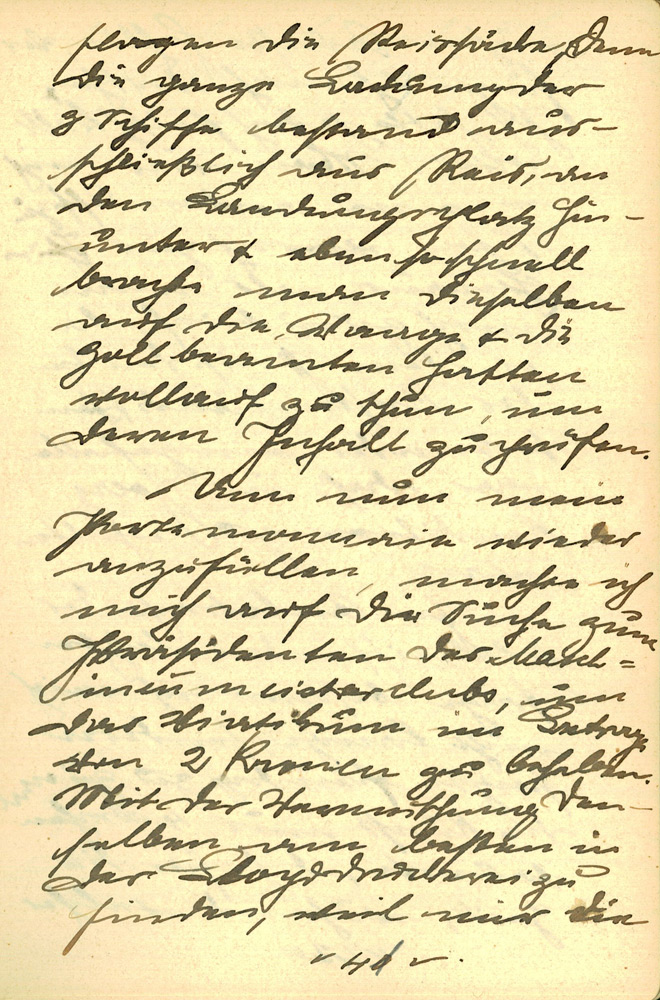 flogen die Reissäcke, denn
die ganze Ladung der
3 Schiffe bestand aus-
schließlich aus Reis, an
den Landungsplatz hin-
unter & eben so schnell
brachte man dieselben
auf die Waage & die
Zollbeamten hatten
vollauf zu thun, um
deren Inhalt zu prüfen.
Um nun mein
Portemonnaie wieder
anzufüllen, machte ich
mich auf die Suche zum
Präsidenten des Masch-
inenmeisterclubs, um
das Viatikum im Betrage
von 2 Kronen zu beheben.
Mit der Vermuthung den-
selben am besten in
der Lloyddruckerei zu
finden, weil mir die